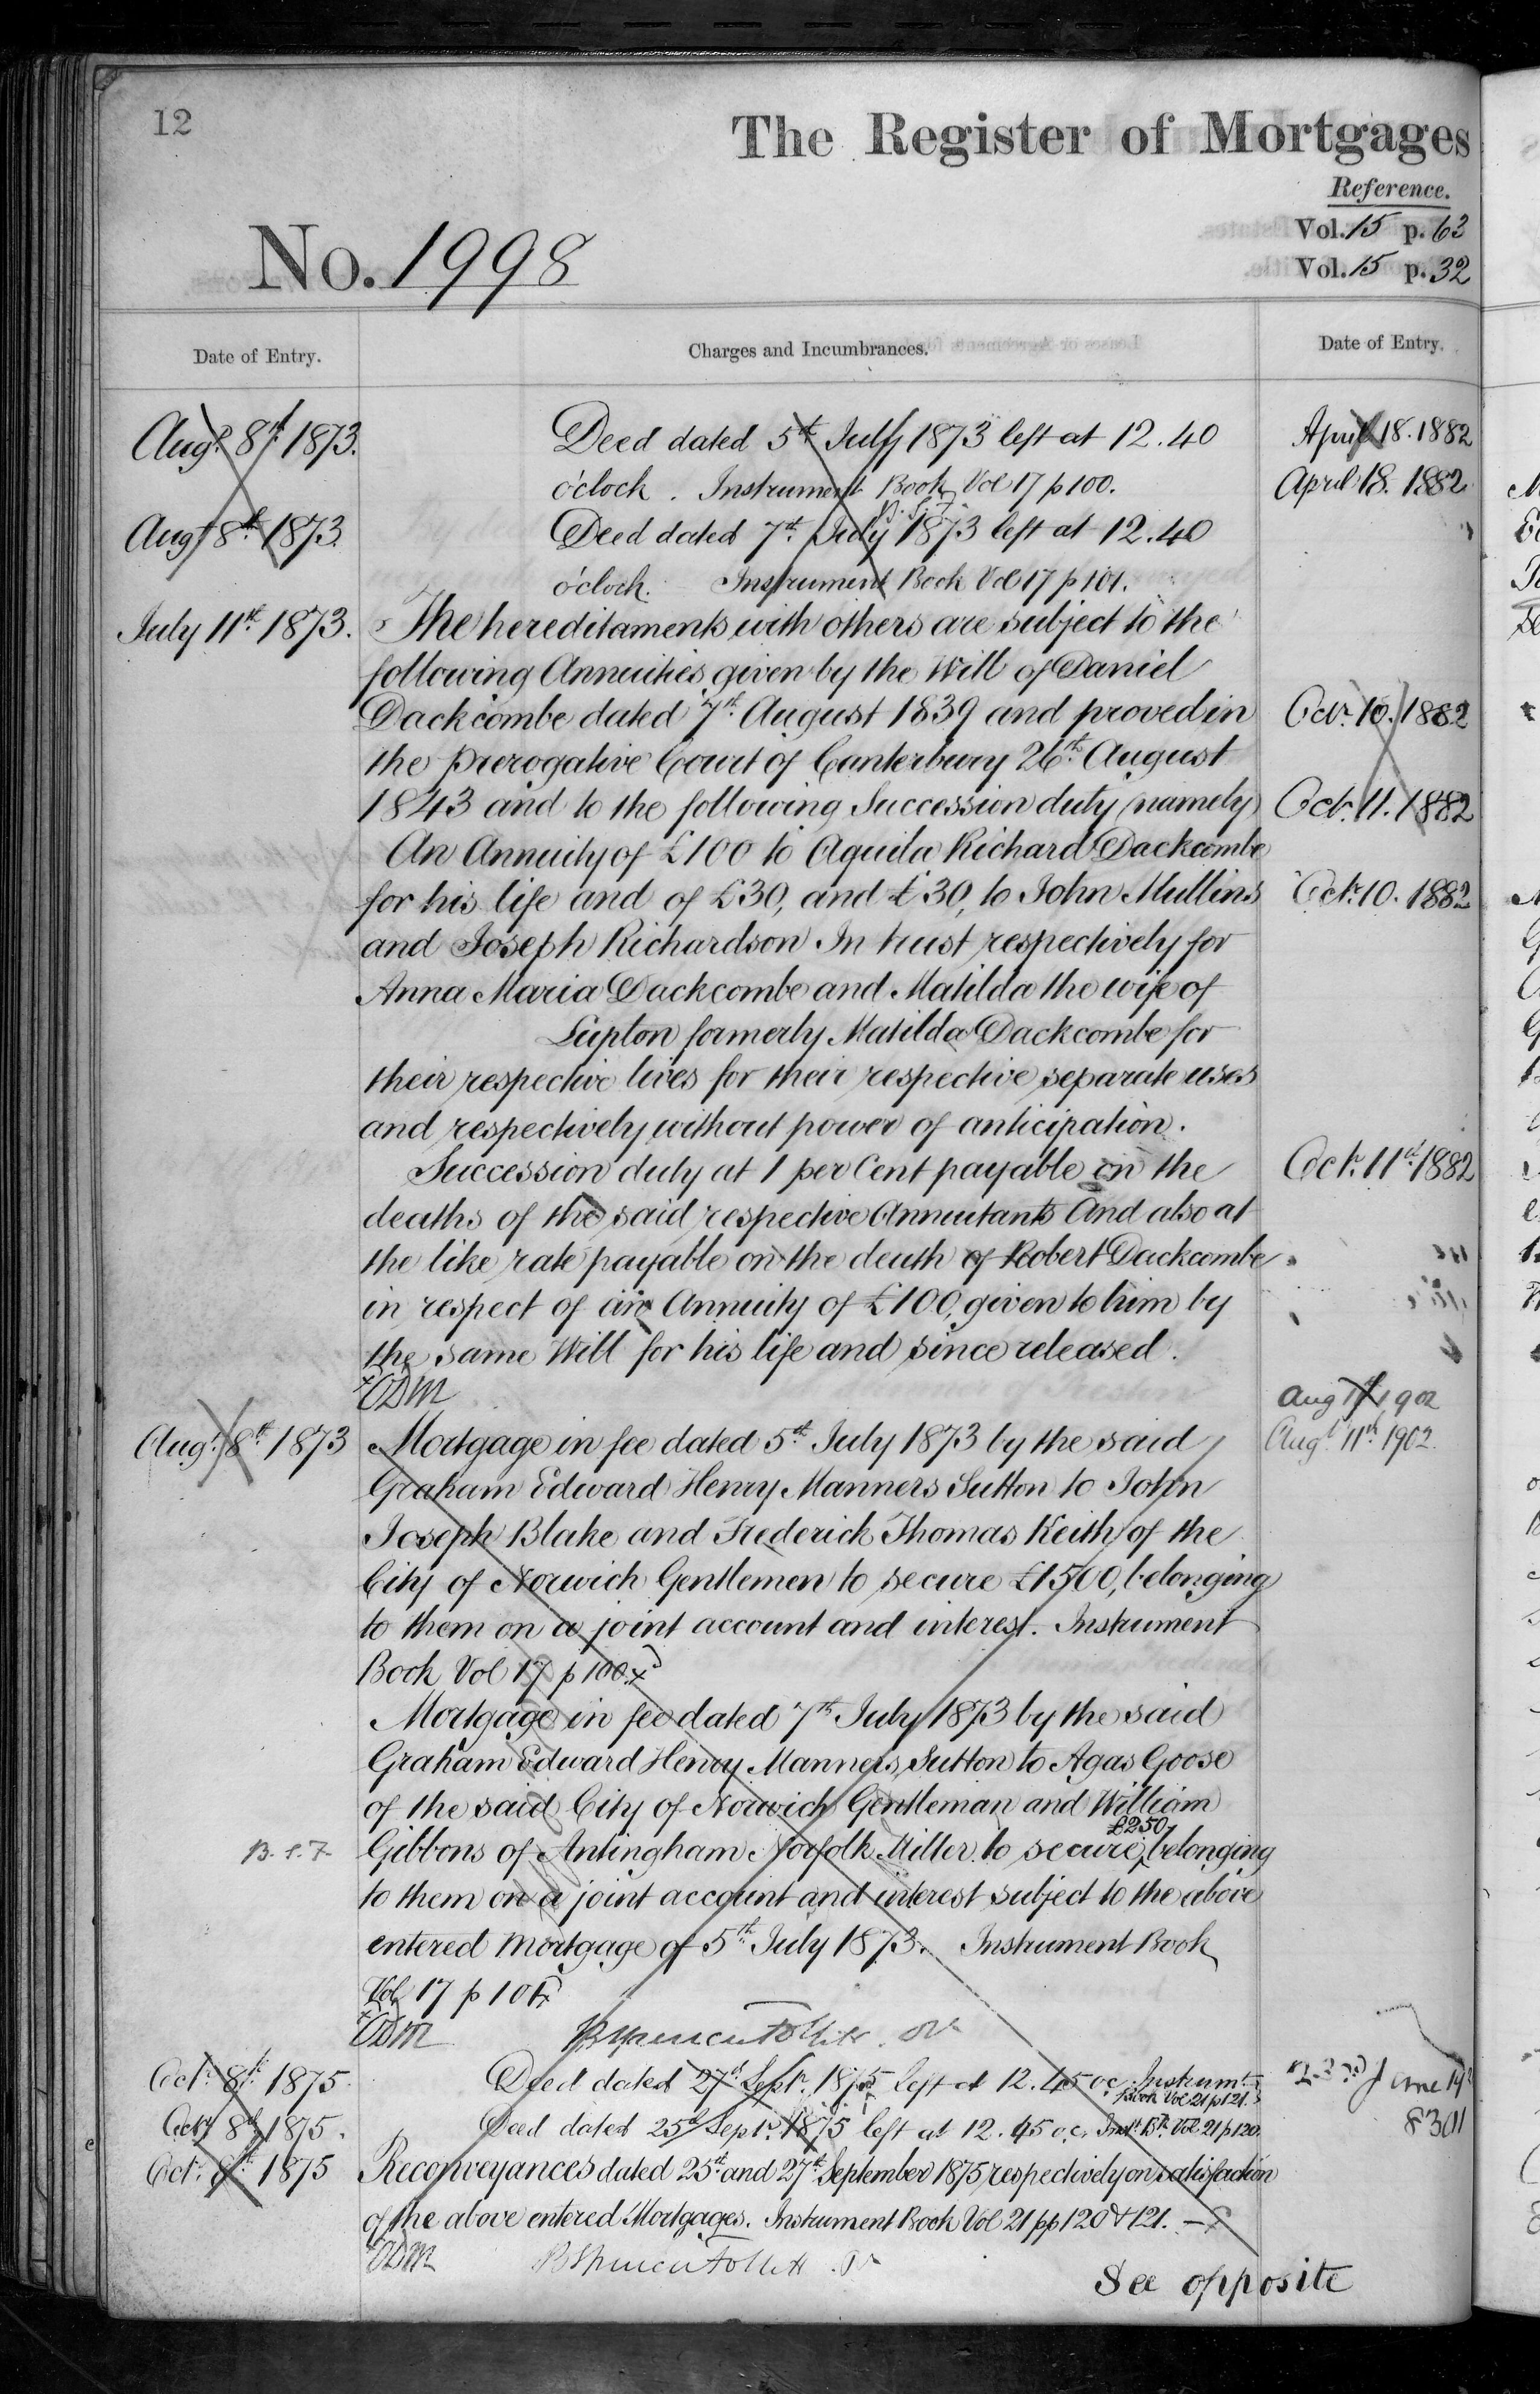 12
The Register of Mortgages
Reference.
Vol. 15 p. 63
Vol. 15 p. 32
No. 1998
Date of Entry.
Charges and Incumbrances.
Date of Entry.
Augt. 8th. 1873.
Deed dated 5th July 1873 left at 12.40
April 18. 1882
o'clock. Instrument Book Vol 17 p 100.
April 18. 1882
B.S.F.
Augt 8th. 1873.
Deed dated 7th. July 1873 left at 12.40
o'clock. Instrument Book Vol 17 p 101.
July 11th. 1873.
The hereditaments with others are subject to the
following Annuities given by the Will of Daniel
Dackcombe dated 7th. August 1839 and proved in
Octr. 10. 1882
the Prerogative Court of Canterbury 26th. August
1843 and to the following Succession duty (namely)
Octr. 11. 1882
An Annuity of £100 to Aquila Richard Dackcombe
for his life and of £30, and £30, to John Mullins
Octr. 10. 1882
and Joseph Richardson In trust respectively for
Anna Maria Dackcombe and Matilda the wife of
Lupton formerly Matilda Dackcombe for
their respective lives for their respective separate uses
and respectively without power of anticipation.
Succession duty at 1 per Cent payable on the
Octr. 11th. 1882
deaths of the said respective Annuitants And also at
the like rate payable on the death of Robert Dackcombe
in respect of an Annuity of £100, given to him by
the same Will for his life and since released.
ODM
Aug 1902
Augt. 8th. 1873
Mortgage in fee dated 5th. July 1873 by the said
Augt 11th 1902.
Graham Edward Henry Manners Sutton to John
Joseph Blake and Frederick Thomas Keith of the
City of Norwich Gentlemen to secure £1500, belonging
to them on a joint account and interest. Instrument
Book Vol 17 p 100.
Mortgage in fee dated 7th July 1873 by the said
Graham Edward Henry Manners Sutton to Agas Goose
of the said City of Norwich Gentleman and William
£250,
B.S.F.
Gibbons of Antingham Norfolk Miller to secure belonging
to them on a joint account and interest subject to the above
entered Mortgage of 5th. July 1873. Instrument Book
Vol 17 p 101
ODM
Octr. 8th. 1875.
Deed dated 27th Septr. 1875 left at 12.45 oc. Instrumt.
Book Vol 21 p 121.
June
Octr 8th 1875.
Deed dated 25th Septr. 1875 left at 12.45 o.c. Inst. Bk. Vol 21 p 120.
Octr. 8th. 1875
Reconveyances dated 25th and 27th September 1875 respectively on satisfaction
of the above entered Mortgages. Instrument Book Vol 21 pp 120 & 121.
ODM
See opposite